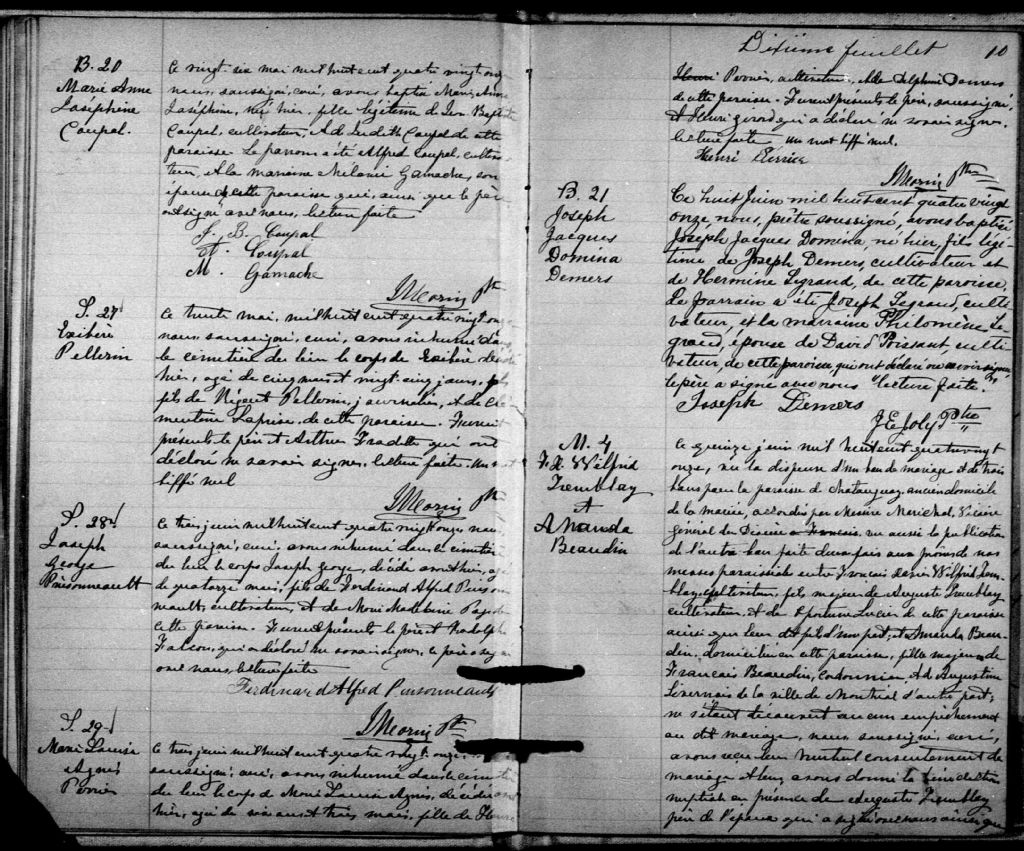 B. 20
Marie Anne
Joséphine
Coupal.
Ce vingt six mai mil huit cent quatre vingt onze
nous, soussigné, curé, avons baptisé Marie Anne
Joséphine, née hier, fille légitime de Jean Baptiste
Coupal, cultivateur, & de Judith Coupal de cette
paroisse. Le parrain a été Alfred Coupal, cultiva-
teur, & la marraine Mélanie Gamache, son
épouse de cette paroisse qui, ainsi que le père
ont signé avec nous, lecture faite
J. B. Coupal
A. Coupal
M. Gamache
J Morin Ptre
S. 27
Exibère
Pellerin
Ce trente mai, mil huit cent quatre vingt onze
nous, soussigné, curé, avons inhumé dans
le cimetière du lieu le corps de Exibère, décédé
hier, agé de cinq mois et vingt cinq jours, fils
de Pellerin, journalier, & de Clé-
mentine Laprise, de cette paroisse. Furent
présents le père & Arthur qui ont
déclaré ne savoir signer, lecture faite. Un mot
biffé nul
J Morin Ptre
S. 28
Joseph
George
Pinsonneault
Ce trois juin mil huit cent quatre vingt onze, nous
soussigné, curé, avons inhumé dans le cimetière
du lieu le corps Joseph George, décédé avant hier, agé
de quatorze mois, fils de Ferdinand Alfred Pinson-
neault, cultivateur, & de Marie Madeleine de
cette paroisse. Furent présents le père & Rodolphe
Falcon, qui a déclaré ne savoir signer, le père a signé
avec nous, lecture faite
Ferdinand Alfred Pinsonneault
J Morin Ptre
S. 29
Marie Louise
Agnès
Perrier
Ce trois juin mil huit cent quatre vingt onze, nous
soussigné, curé, avons inhumé dans le cimetière
du lieu le corps de Marie Louise Agnès, décédée avant
hier, agée de six ans & trois mois, fille de Henri
Dixième feuillet 10
Henri Perrier, cultivateur, & de Delphine Demers
de cette paroisse. Furent présents le père, soussigné,
& Henri Girard qui a déclaré ne savoir signer,
lecture faite. Un mot biffé nul.
Henri Perrier
J Morin Ptre
B. 21
Joseph
Jacques
Domina
Demers
Ce huit Juin mil huit cent quatre vingt
onze nous, prêtre soussigné, avons baptisé
Joseph Jacques Domina, né hier, fils légi-
time de Joseph Demers, cultivateur et
de Hermine Legrand, de cette paroisse.
Le parrain a été Joseph Legrand, culti-
vateur, et la marraine Philomène Le-
grand, épouse de David Poissant, culti-
vateur, de cette paroisse, qui ont déclaré ne savoir signer,
le père a signé avec nous lecture faite.
Joseph Demers
J E Joly Ptre
M. 4
F. X. Wilfrid
Tremblay
&
Amanda
Beaudin
Ce quinze juin mil huit cent quatre vingt
onze, vu la dispense d'un ban de mariage & de trois
bans pour la paroisse de Chateauguay, ancien domicile
de la mariée, accordés par Messire Maréchal, Vicaire
général du Diocèse, vu aussi la publication
de l'autre ban faite au prône de nos
messes paroissiales entre François Xavier Wilfrid Trem-
blay, cultivateur, fils majeur de Auguste Tremblay
cultivateur, & de de cette paroisse
ainsi que leur dit fils d'une part; & Amanda Beau-
din, domiciliée en cette paroisse, fille majeure de
François Beaudin, Cordonnier, & d'Augustine
Livernois de la ville de Montréal d'autre part;
ne s'étant découvert aucun empêchement
au dit mariage, nous, soussigné, curé,
avons reçu leur mutuel consentement de
mariage & leur avons donné la bénédiction
nuptiale en présence de Auguste Tremblay
père de l'époux qui a signé avec nous ainsi que